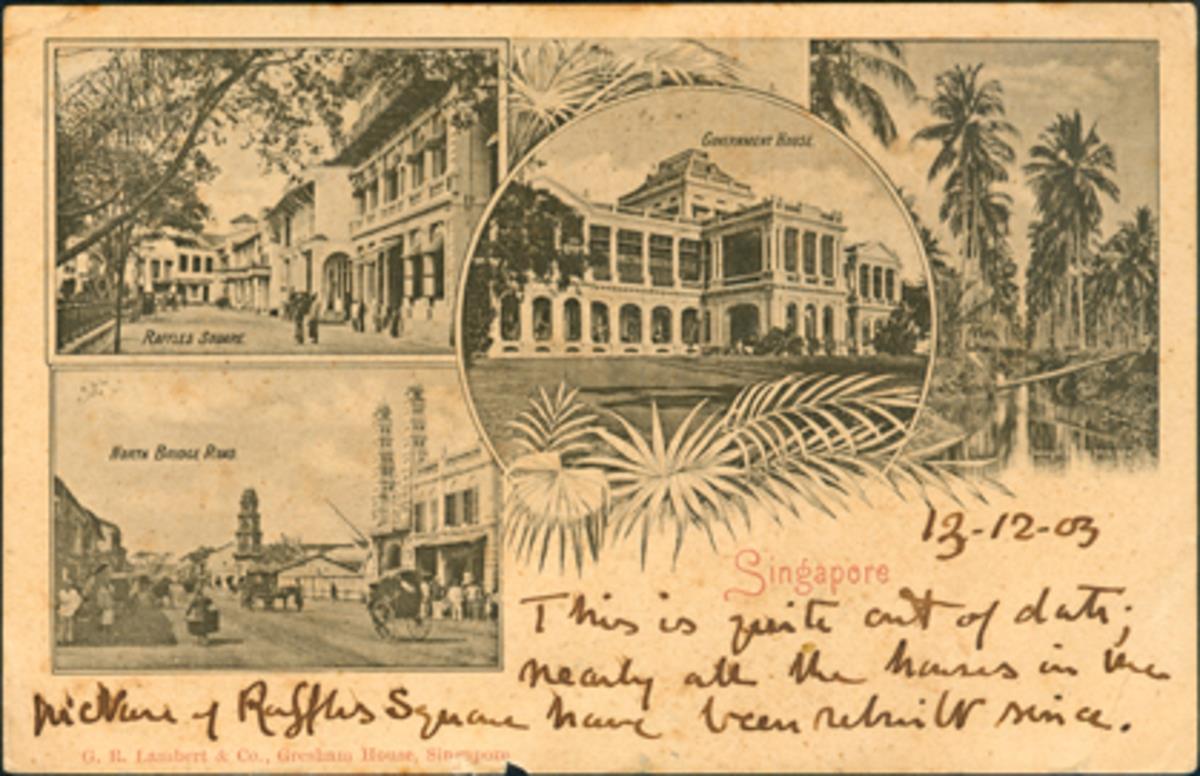 RAFFLES SQUARE.
GOVERNMENT HOUSE.
NORTH BRIDGE ROAD.
13-12-03
Singapore
This is quite out of date;
nearly all the houses in the
picture of Raffles Square have been rebuilt since.
G. R. Lambert & Co., Gresham House, Singapore